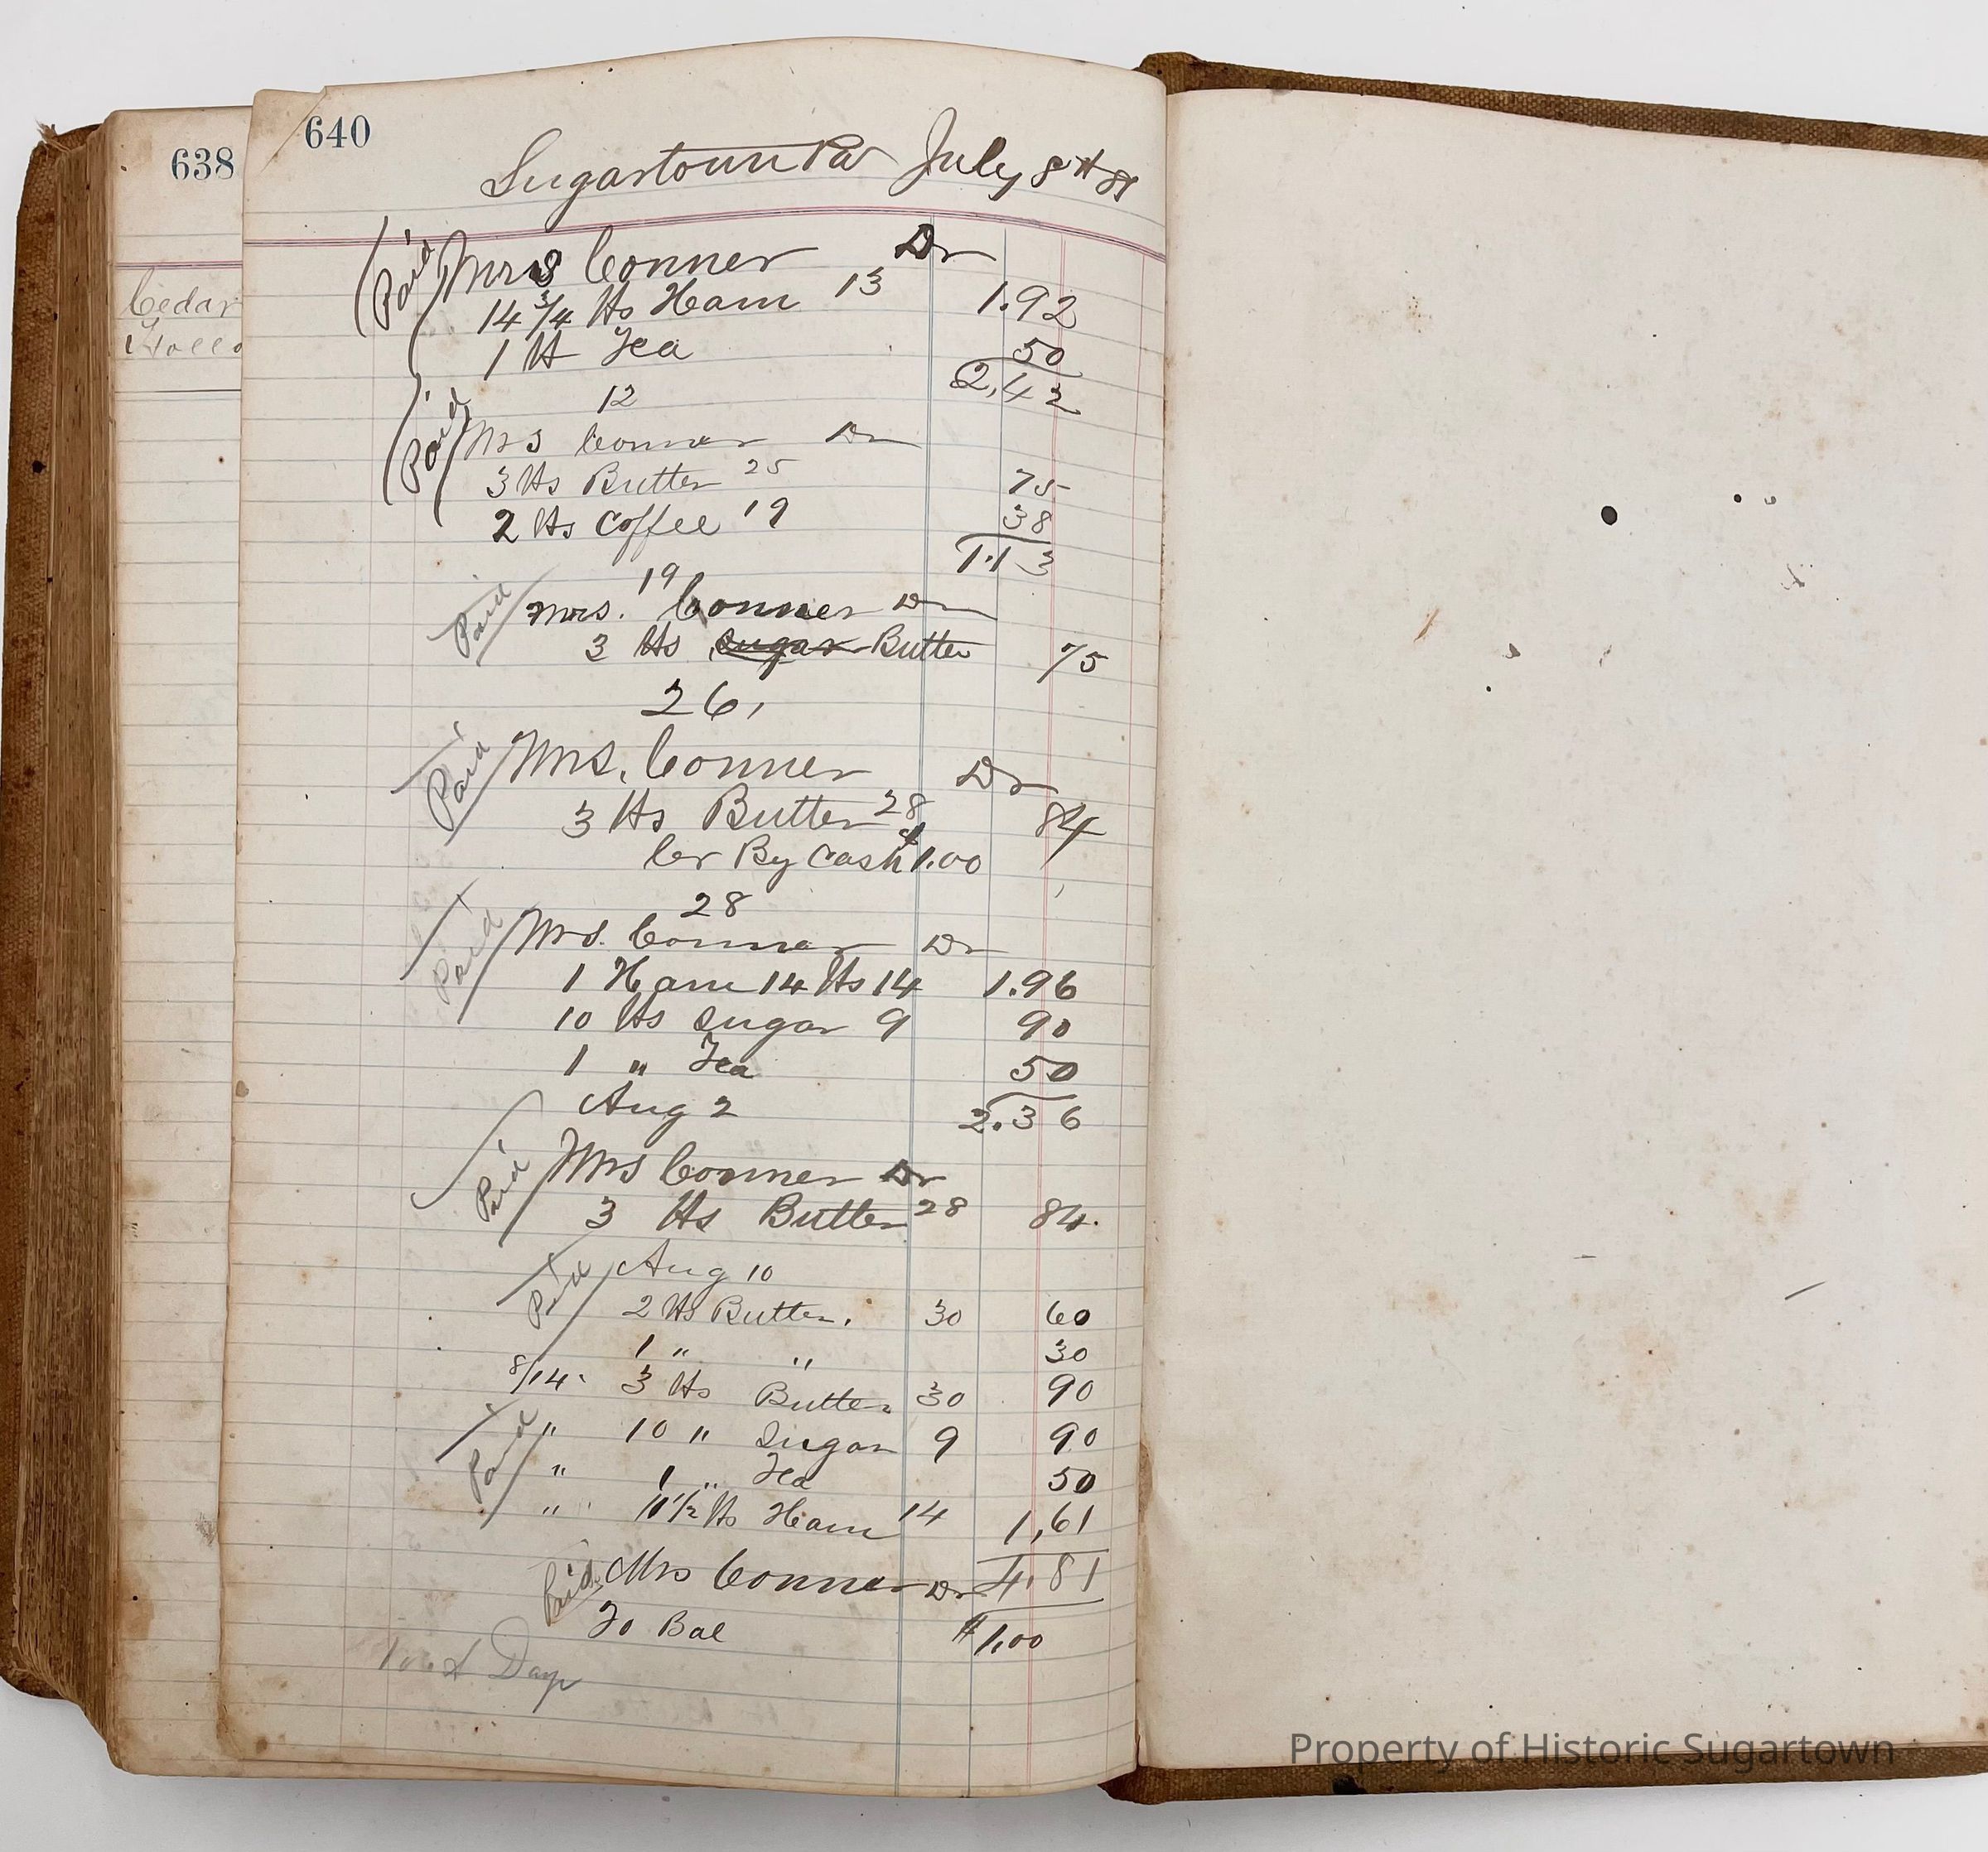 638
Cedar
Hollo
640
Sugartown Pa July 8th 81
Paid Mrs Conner Dr
14 3/4 lbs Ham 13 1.92
1 lb Tea 50
2,42
12
Paid Mrs Conner Dr
3 lbs Butter 25 75
2 lbs Coffee 19 38
1.13
19
Paid Mrs. Conner Dr
3 lbs sugar Butter 75
26,
Paid Mrs. Conner Dr
3 lbs Butter 28 84
Cr By Cash $1.00
28
Paid Mrs. Conner Dr
1 Ham 14 lbs 14 1.96
10 lbs Sugar 9 90
1 " Tea 50
Aug 2 2.36
Paid Mrs Conner Dr
3 lbs Butter 28 84.
Paid Aug 10
2 lbs Butter. 30 60
1 " " 30
8/14. 3 lbs Butter 30 90
Paid " 10 " Sugar 9 90
" 1 " Tea 50
" 11 1/2 lbs Ham 14 1,61
Paid Mrs Conner Dr 4.81
To Bal $1.00
Day
Property of Historic Sugartown